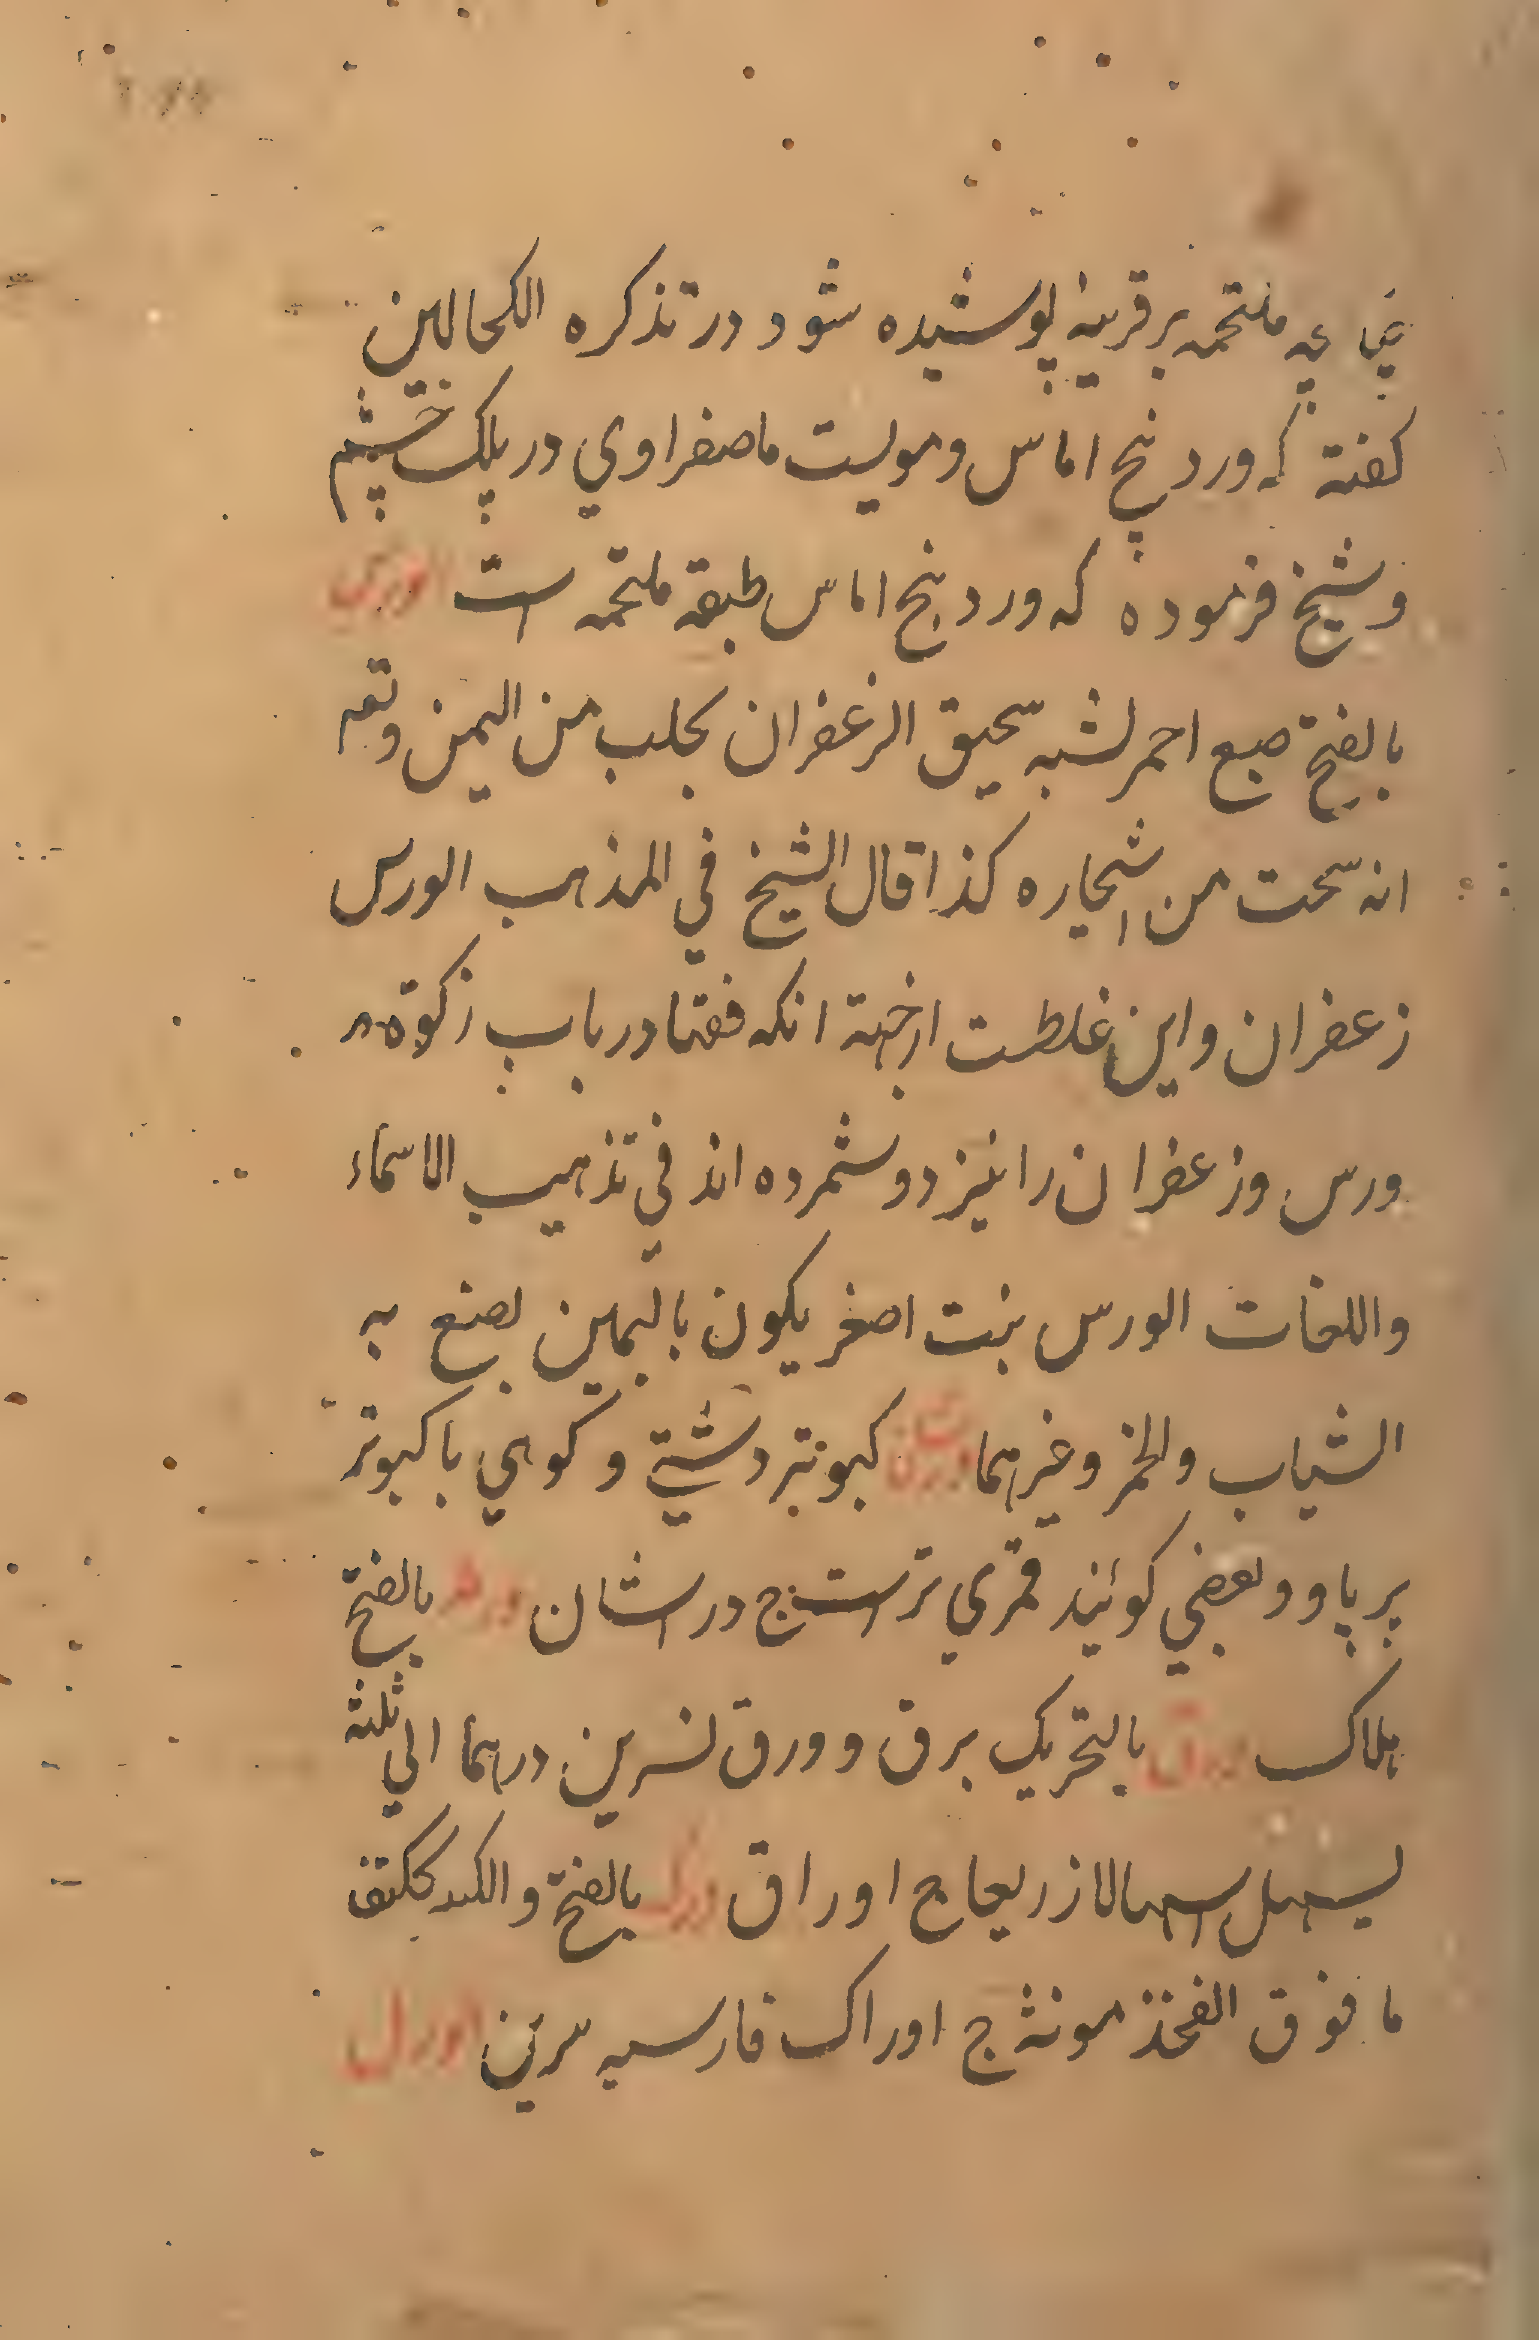 ملتحمه بر قرنیه پوشیده شود در تذکره الکحالین
کفته که وردینج اماس ومولیت ماصفراوي در پلک چشم
وشیخ فرموده که وردینج اماس طبقه ملتحمه است الورس
بالفتح صبع احمر لشبه سحیق الزعفران یجلب من الیمن وتعه
انه سحت من اشجاره کذا قال الشیخ في المذهب الورس
زعفران واین غلطت ازجهة انکه فقها در باب زکوة
ورس وزعفران را نیز دو شمرده اند في تذهیب الاسماء
واللغات الورس بنت اصغر یکون بالیمین لصنع به
الشیاب والخز وغیرهما ورشان کبوتر دشتي وکوهي با کبوتر
پر پا و و بعضي کوئیند قمري تر است ج درشان ورط بالفتح
هلاک ورق بالتحریک برق و ورق نسرین درهما الي ثلثة
لیسهل اسهالا ذریعا ج اوراق ورک بالفتح والکسر ککتف
ما فوق الفخذ مونثة ج اوراک فارسیه سرین الورل